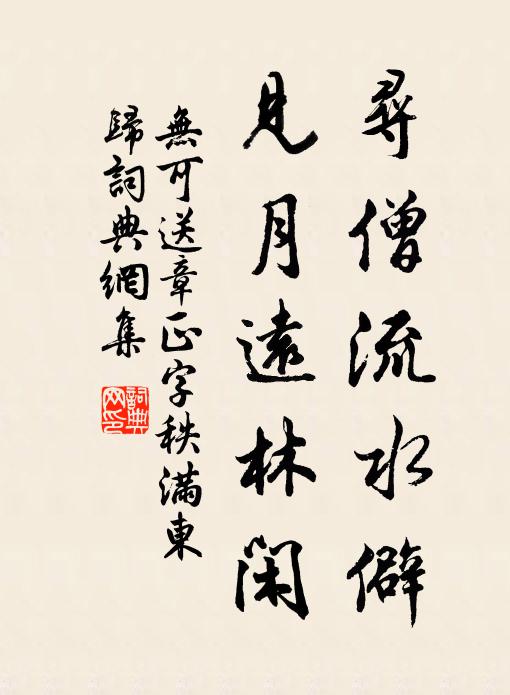 尋僧流水僻
見月遠林閑
無可送章正字秩滿東
歸詞典網集
詞典
网印